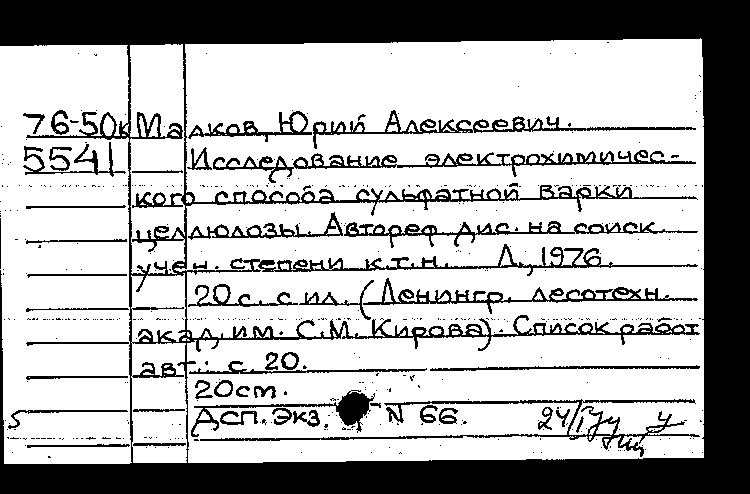 76-50к Малков, Юрий Алексеевич.
5541 Исследование электрохимичес-
кого способа сульфатной варки
целлюлозы. Автореф дис. на соиск.
учен. степени к.т.н. Л., 1976.
20 с. с ил. (Ленингр. лесотехн.
акад. им. С.М. Кирова). Список работ
авт.: с. 20.
20 cm.
s ДСП. Экз. N 66. 24/